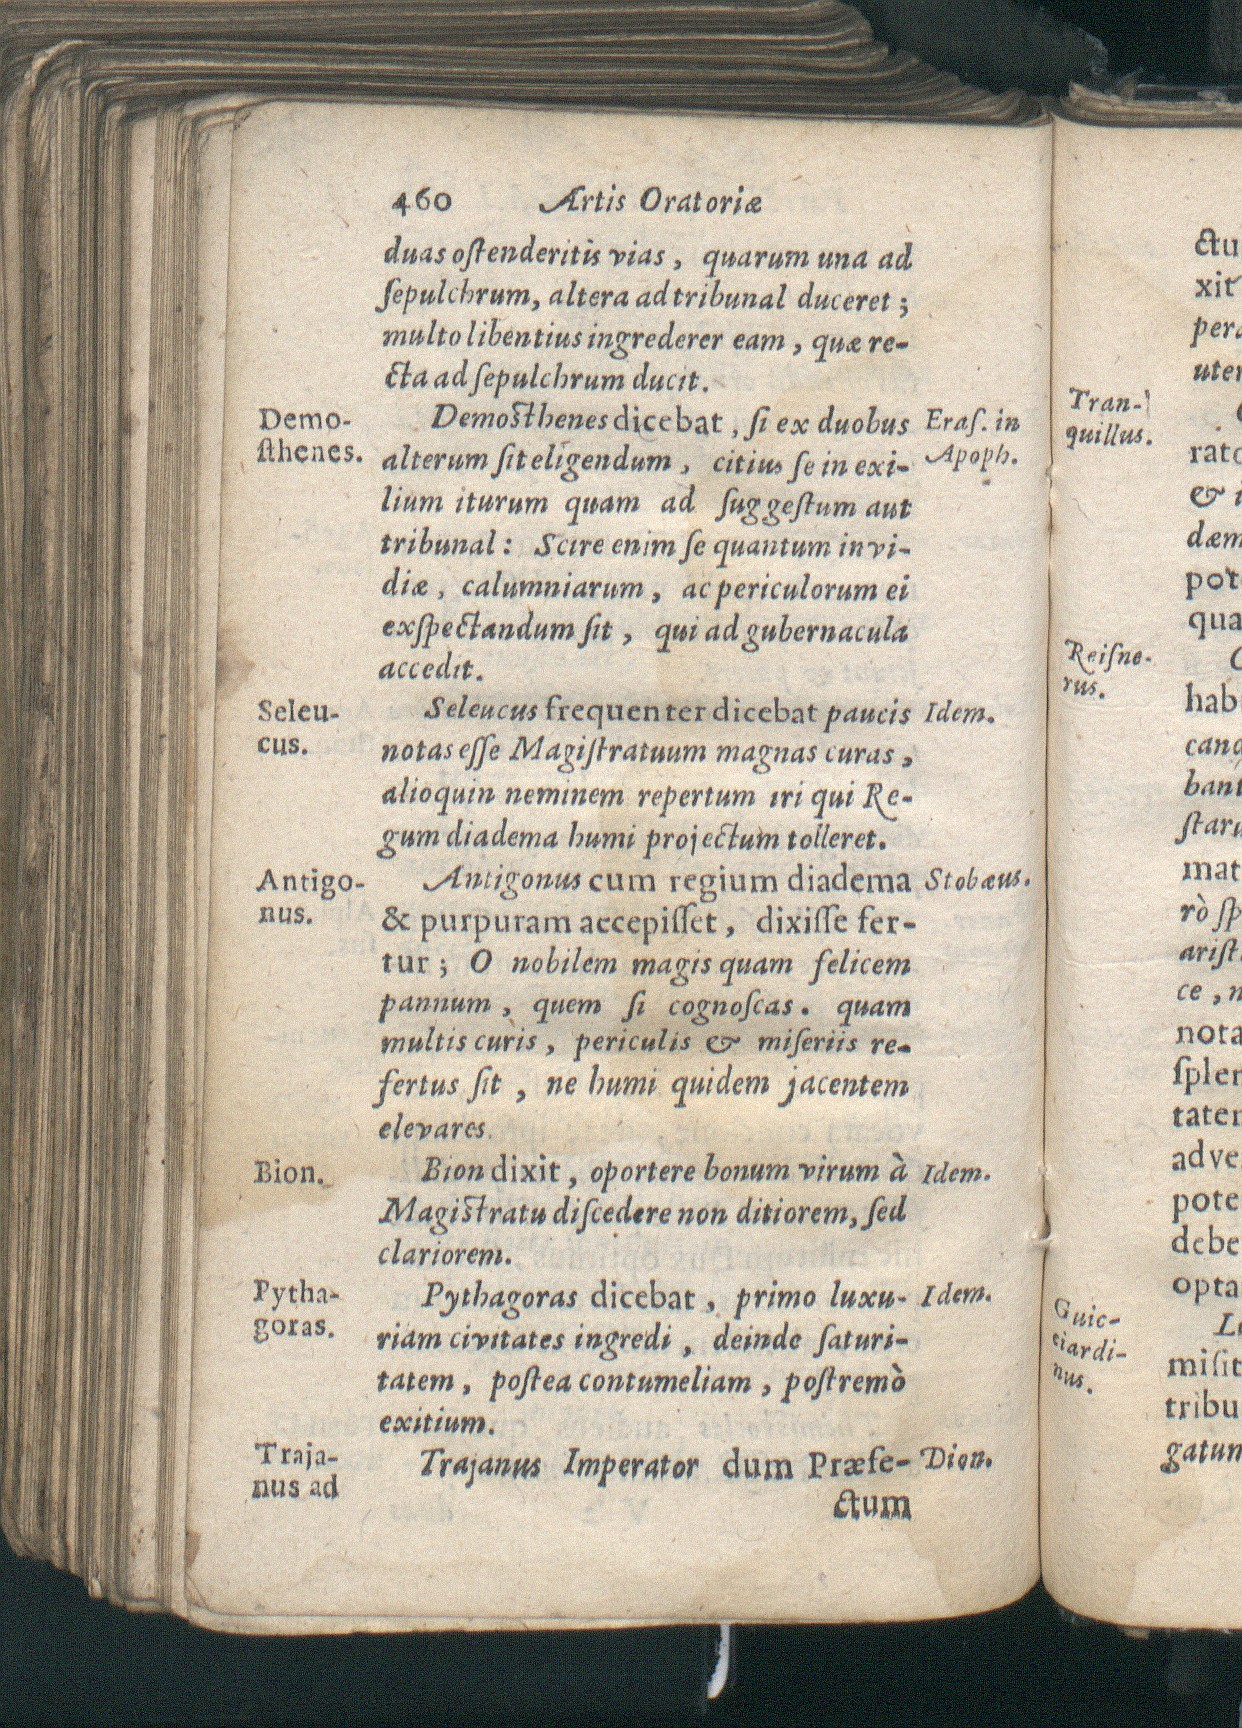 460 Artis Oratoriæ
duas ostenderitis vias, quarum una ad
sepulchrum, altera ad tribunal duceret;
multo libentius ingrederer eam, quæ re-
cta ad sepulchrum ducit.
Demo-
sthenes.
Demosthenes dicebat, si ex duobus
alterum sit eligendum, citius se in exi-
lium iturum quam ad suggestum aut
tribunal: Scire enim se quantum invi-
diæ, calumniarum, ac periculorum ei
exspectandum sit, qui ad gubernacula
accedit.
Eras. in
Apoph.
Seleu-
cus.
Seleucus frequenter dicebat paucis
notas esse Magistratuum magnas curas,
alioquin neminem repertum iri qui Re-
gum diadema humi projectum tolleret.
Idem.
Antigo-
nus.
Antigonus cum regium diadema
& purpuram accepisset, dixisse fer-
tur; O nobilem magis quam felicem
pannum, quem si cognoscas. quam
multis curis, periculis & miseriis re-
fertus sit, ne humi quidem jacentem
elevares.
Stobæus.
Bion.
Bion dixit, oportere bonum virum à
Magistratu discedere non ditiorem, sed
clariorem.
Idem.
Pytha-
goras.
Pythagoras dicebat, primo luxu-
riam civitates ingredi, deinde saturi-
tatem, postea contumeliam, postremò
exitium.
Idem.
Traja-
nus ad
Trajanus Imperator dum Præfe-
ctum
Dion.
Tran-
quillus.
Reisne-
rus.
Guic-
ciardi-
nus.
ctu
xit
pera
uter
rato
& i
dæm
pot
qua
hab
cana
bant
staru
mat
rò sp
arist
ce, n
nota
spler
tater
adve
pote
debe
opta
Le
misit
tribu
gatun